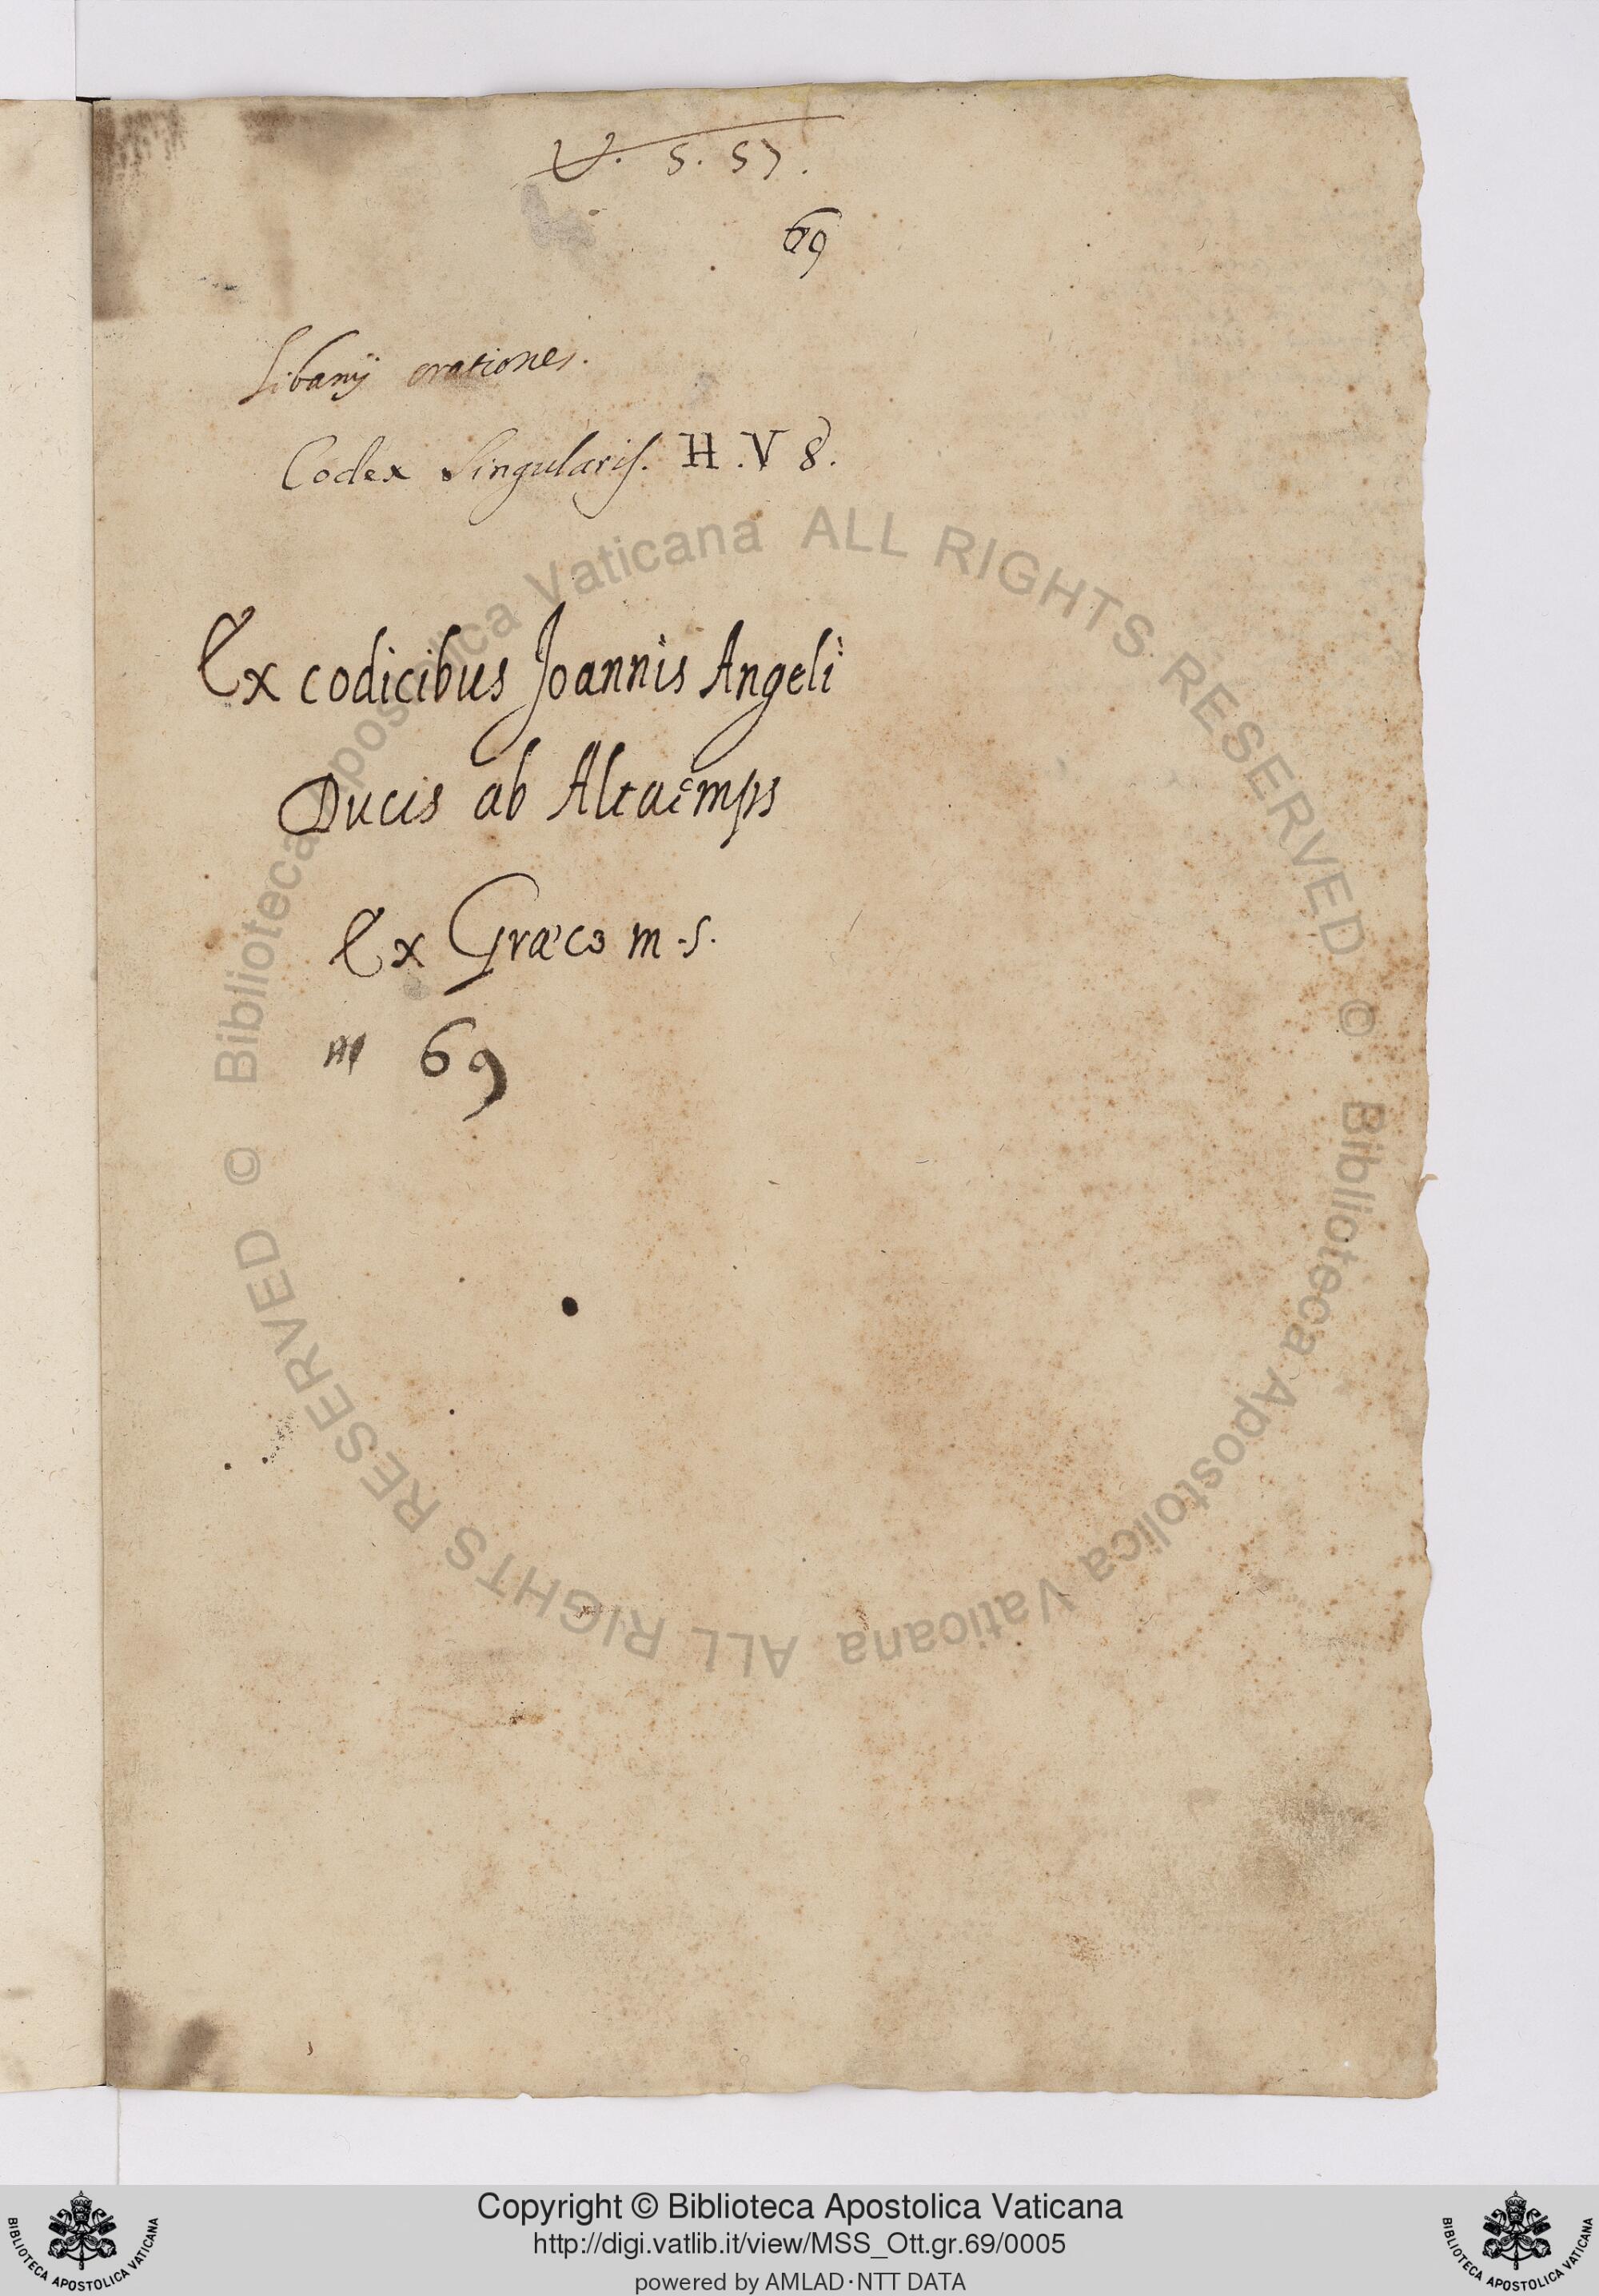 V. 5. 57.
69
Libanij orationes.
Codex Singularis. H.V 8.
Ex codicibus Joannis Angeli
Ducis ab Altaemps
Ex Græco m.s.
69
© Biblioteca Apostolica Vaticana ALL RIGHTS RESERVED
© Biblioteca Apostolica Vaticana ALL RIGHTS RESERVED
Copyright © Biblioteca Apostolica Vaticana
http://digi.vatlib.it/view/MSS_Ott.gr.69/0005
powered by AMLAD·NTT DATA
BIBLIOTECA APOSTOLICA VATICANA
BIBLIOTECA APOSTOLICA VATICANA